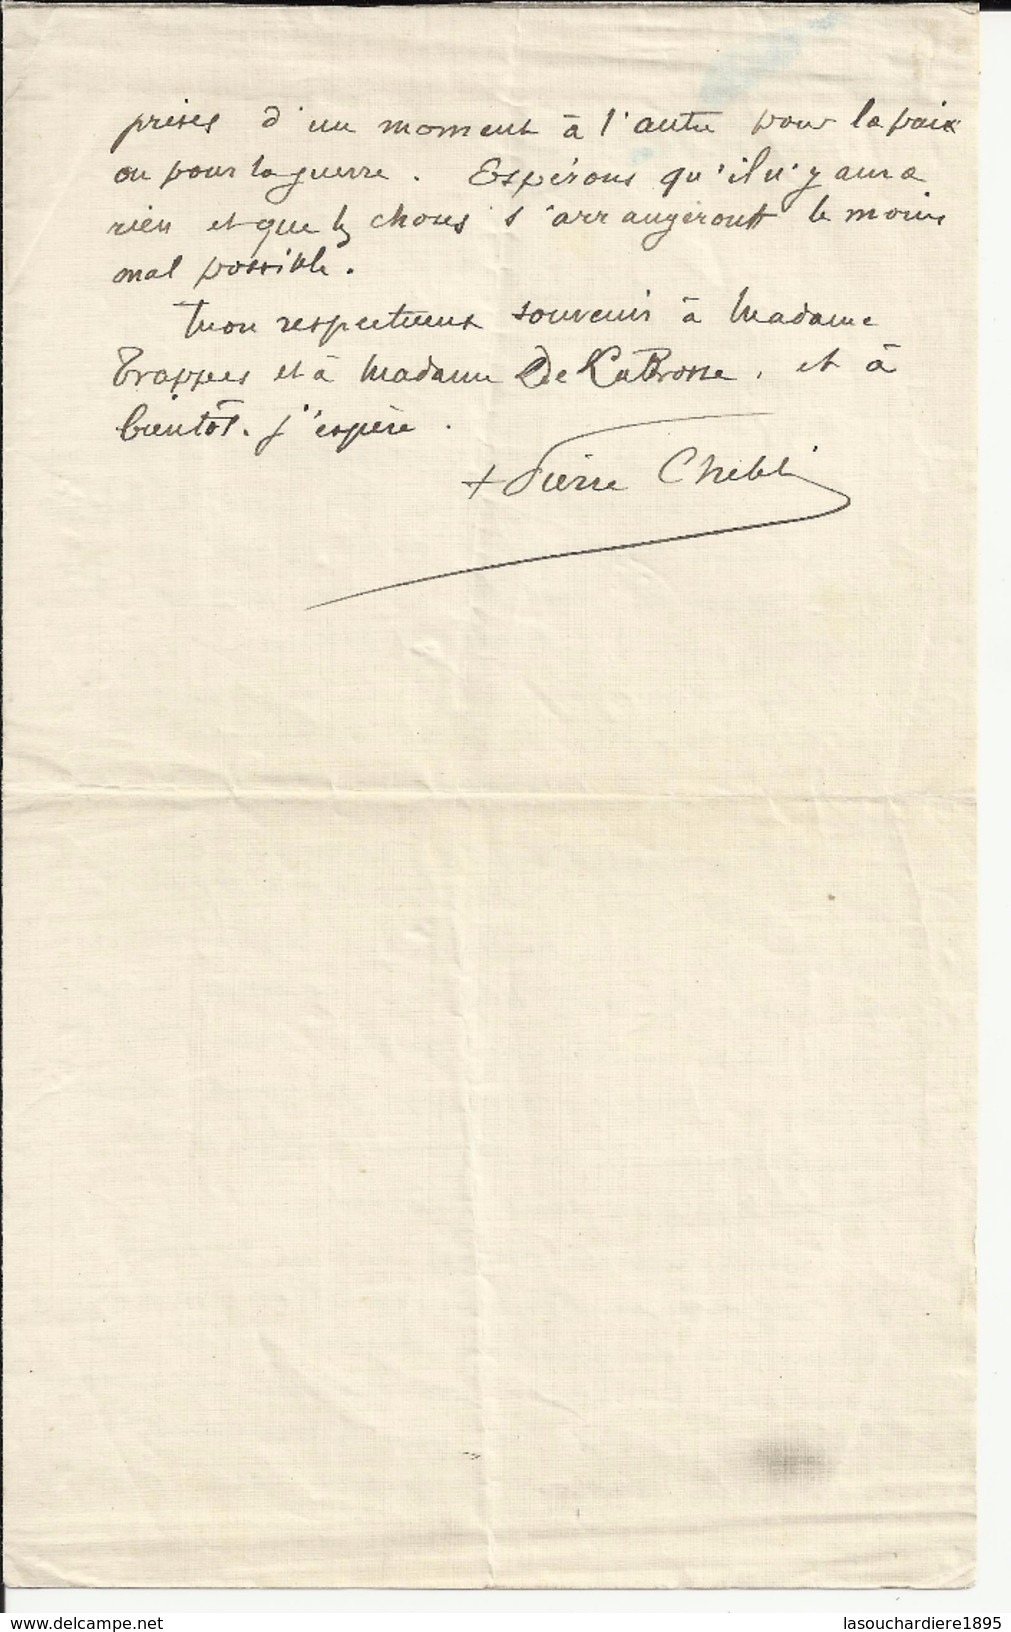 prises d'un moment à l'autre pour la paix
ou pour la guerre. Espérons qu'il n'y aura
rien et que les choses s'arrangeront le moins
mal possible.
Mon respectueux souvenir à Madame
Trappes et à Madame De LaBrosse, et à
bientôt, j'espère.
+ Pierre Chebli
www.delcampe.net
lasouchardiere1895